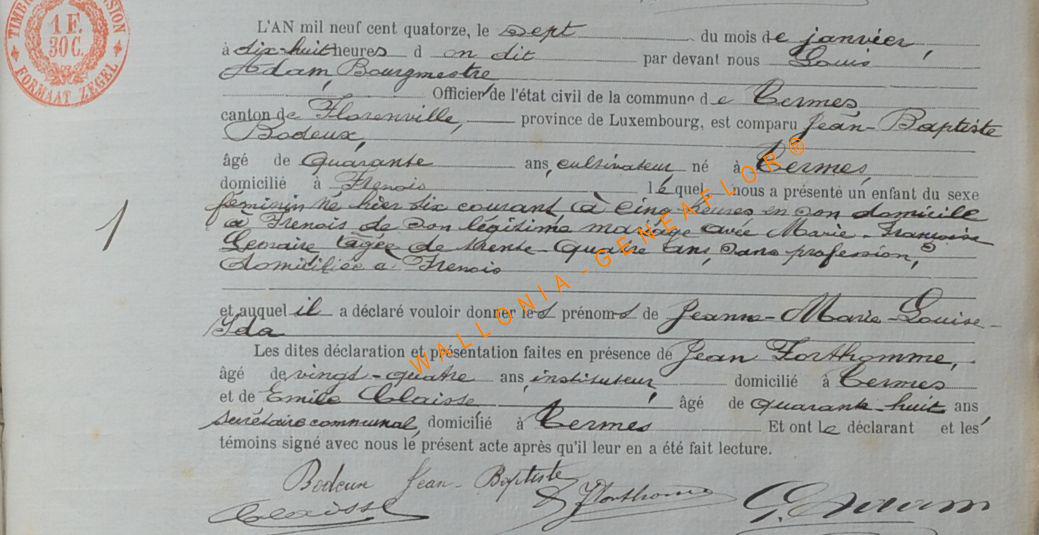 TIMBRE DIMENSION
1 F.
30 C.
FORMAAT ZEGEL
1
L'AN mil neuf cent quatorze, le sept du mois de janvier,
à dix-huit heures d on dit par devant nous Louis
Adam, Bourgmestre
Officier de l'état civil de la commune de Termes,
canton de Florenville, province de Luxembourg, est comparu Jean-Baptiste
Bodeux,
âgé de Quarante ans, cultivateur, né à Termes,
domicilié à Frenois lequel nous a présenté un enfant du sexe
féminin né hier six courant à cinq heures en son domicile
à Frenois de son légitime mariage avec Marie-Françoise
âgée de trente-quatre ans, sans profession,
domiciliée à Frenois
et auquel il a déclaré vouloir donner les prénoms de Jeanne-Marie-Louise-
Ida
Les dites déclaration et présentation faites en présence de Jean Forthomme,
âgé de vingt-quatre ans, instituteur, domicilié à Termes
et de Emile Claisse âgé de quarante-huit ans,
secrétaire communal, domicilié à Termes Et ont le déclarant et les
témoins signé avec nous le présent acte après qu'il leur en a été fait lecture.
Bodeux Jean-Baptiste
Claisse J Forthomme Adam
WALLONIA-GENEAFLOR®